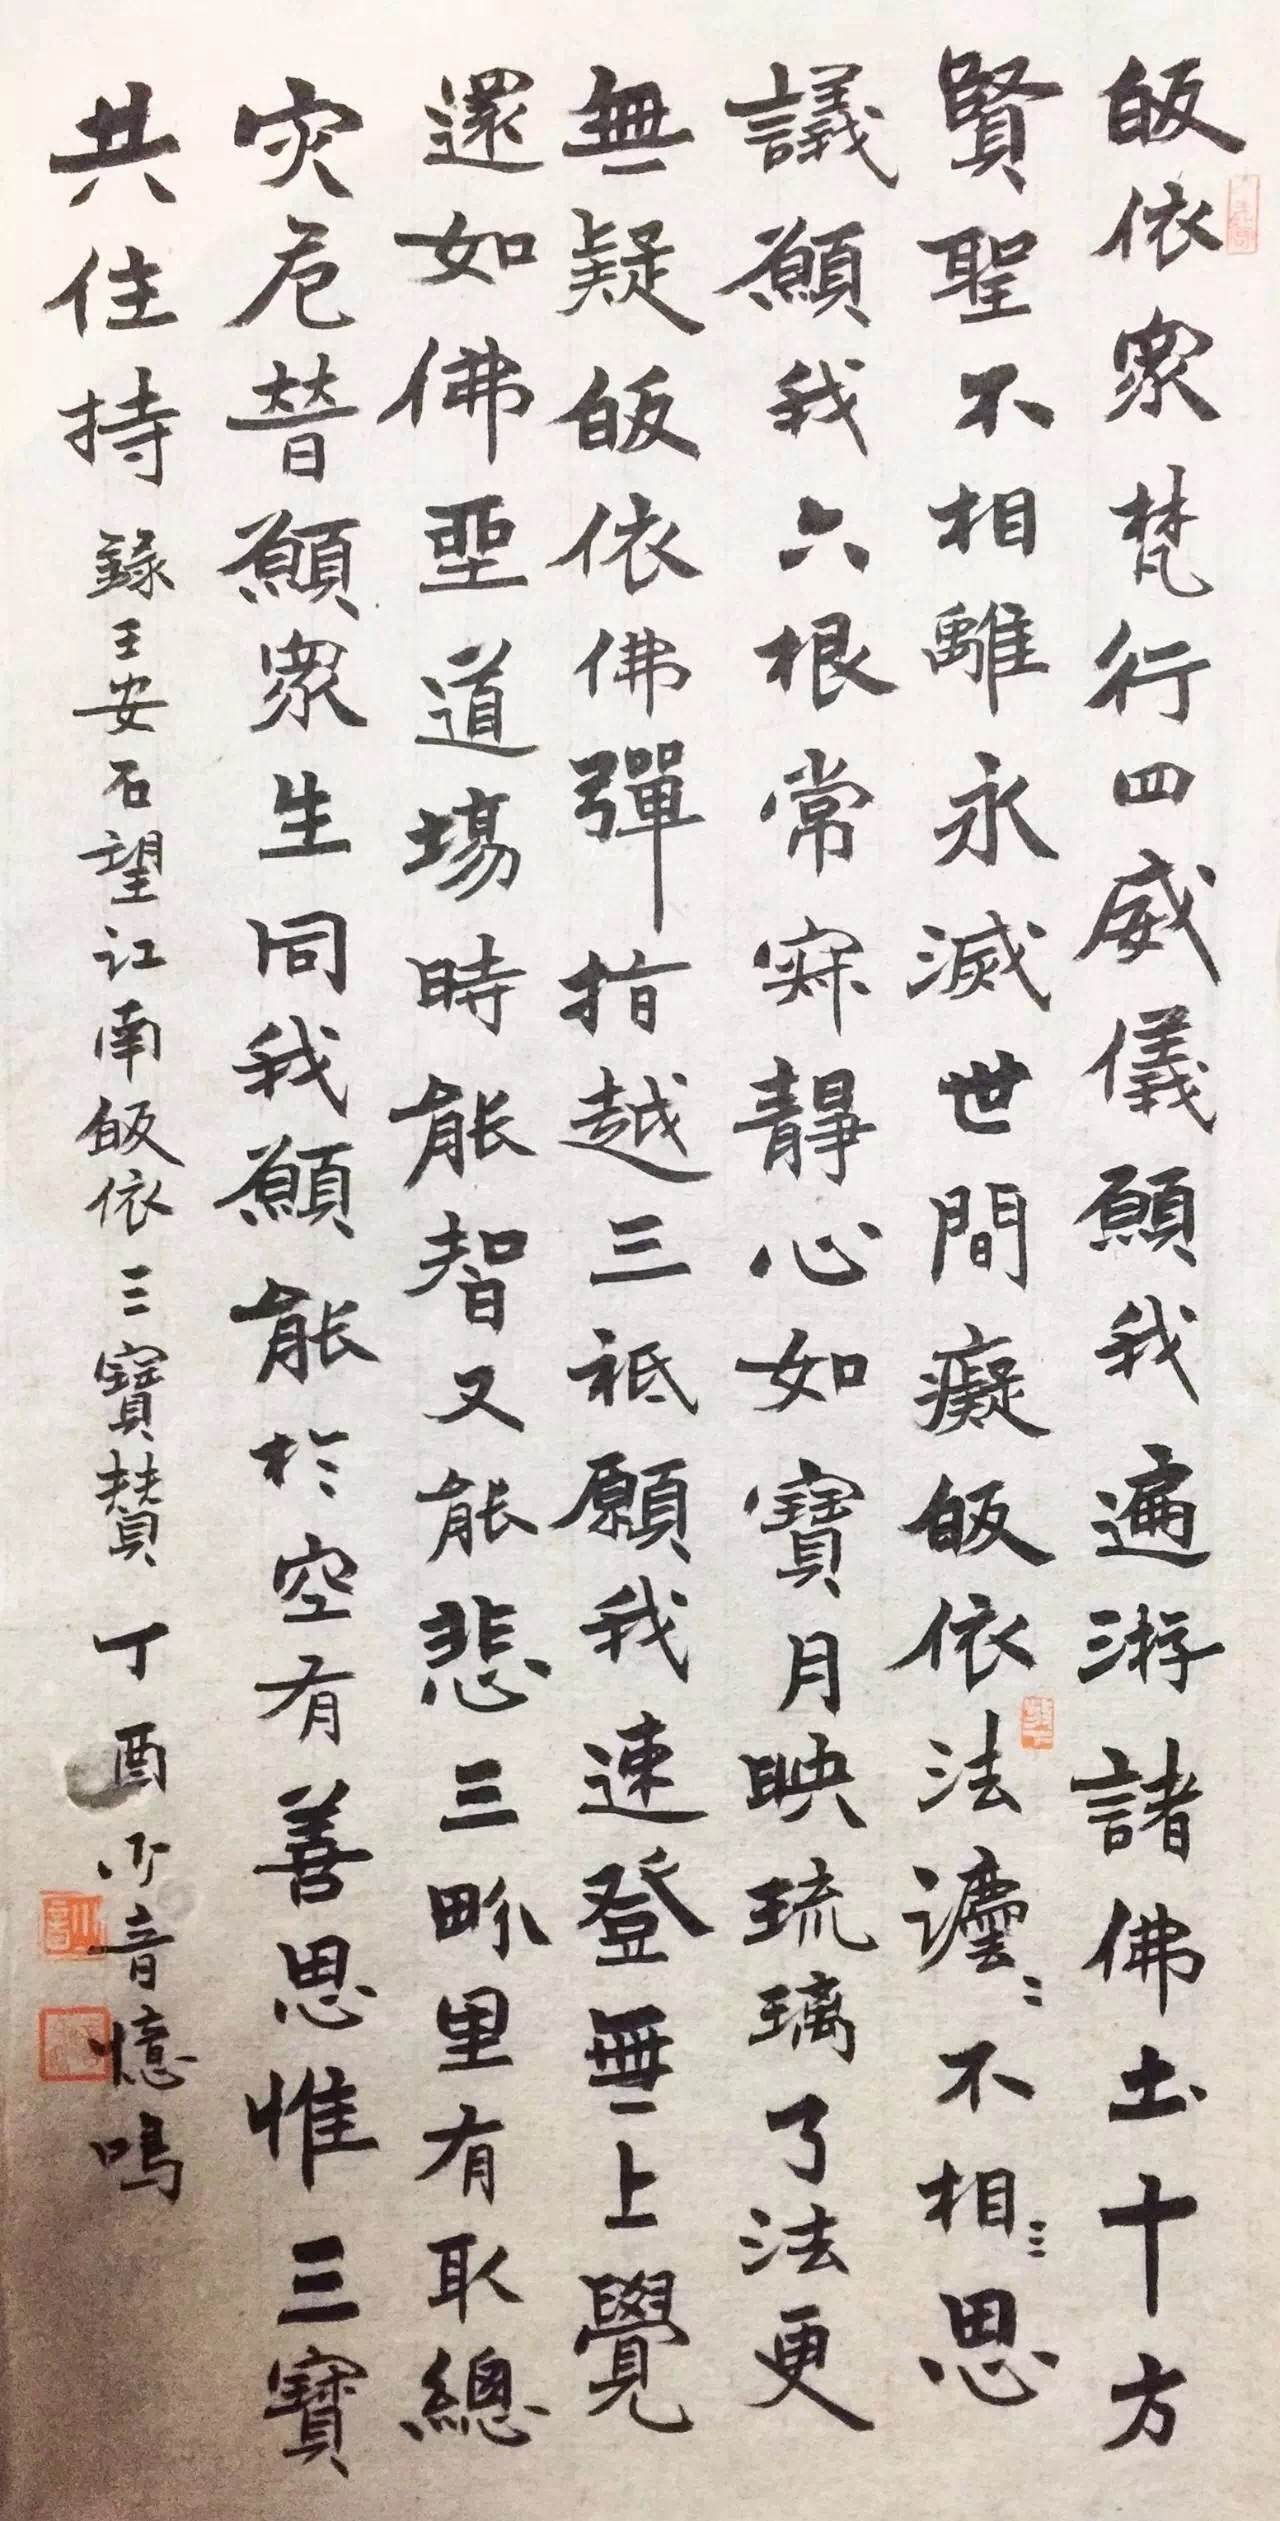 皈依眾梵行四威儀願我遍游諸佛土十方
賢聖不相離永滅世間癡皈依法灋不相思
議願我六根常寂靜心如寶月映琉璃了法更
無疑皈依佛彈指越三祗願我速登無上覺
還如佛坐道場時能智又能悲三畍里有取總
灾危普願眾生同我願能於空有善思惟三寶
共住持 錄王安石望江南皈依三寶贊 丁酉 音憶鳴